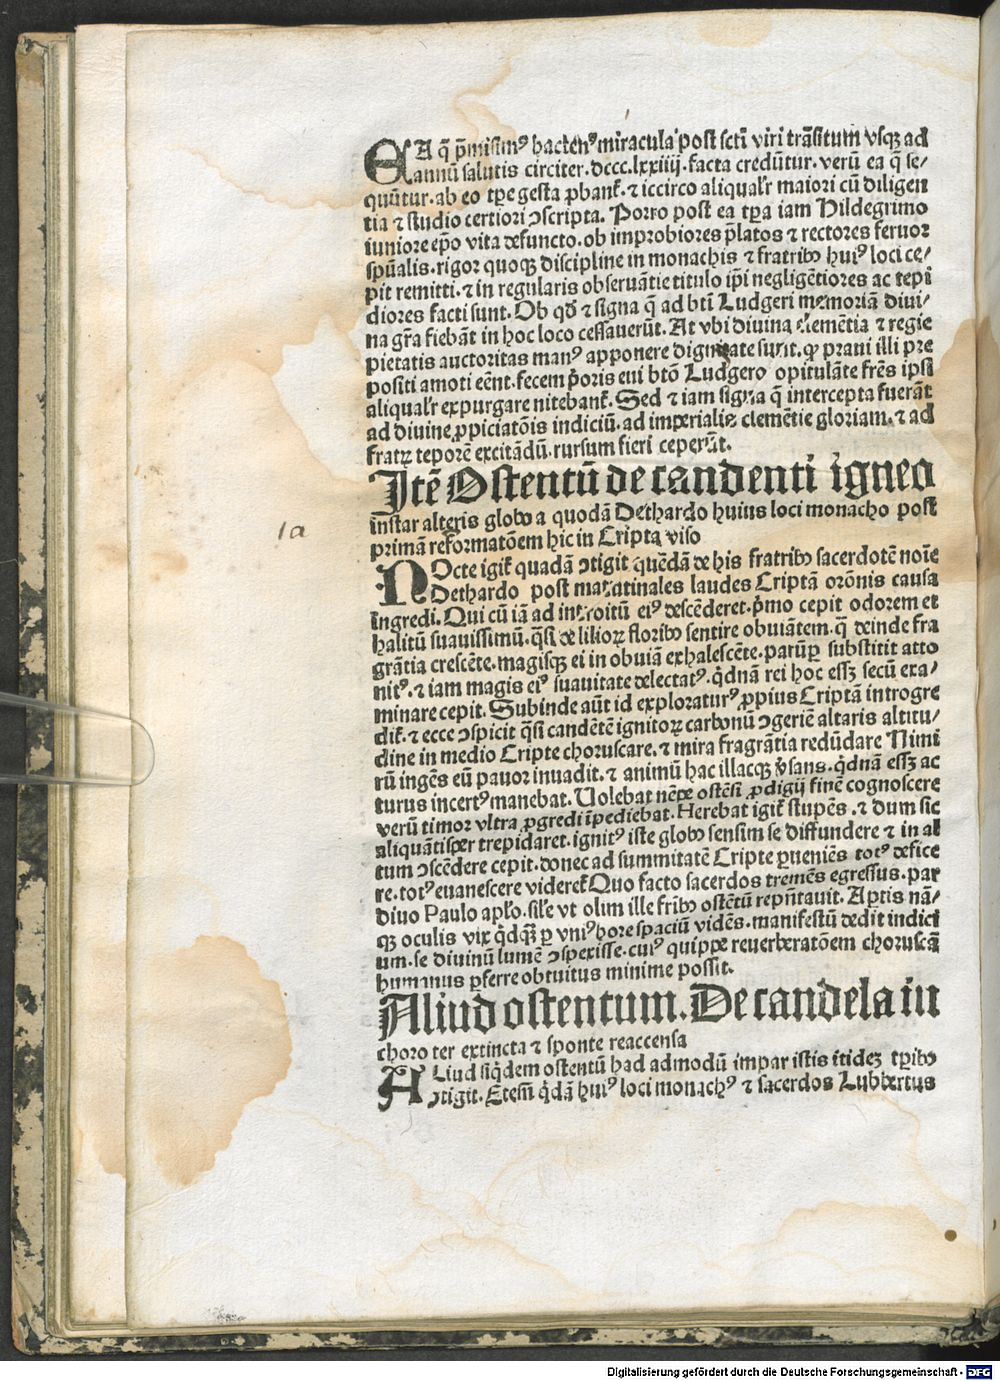 EA q̃ p̃misimꝰ hactenꝰ miracula post scti viri trãsitum vsqꝫ ad
annũ salutis circiter .dccc.lxxiiij. facta credũtur. verũ ea q̃ se/
quũtur. ab eo tp̃e gesta ꝓbant᷒. ⁊ iccirco aliqual'r maiori cũ diligen
tia ⁊ studio certiori ↄscripta. Porro post ea tp̃a iam Hildegrimo
iuniore ep̃o vita defuncto. ob improbiores p̃latos ⁊ rectores feruor
sp̃ualis. rigor quoqꝫ discipline in monachis ⁊ fratribꝰ huiꝰ loci ce/
pit remitti. ⁊ in regularis obseruãtie titulo ip̃i negligẽtiores ac tepi
diores facti sunt. Ob qd̃ ⁊ signa q̃ ad bt̃i Ludgeri memoriã diui/
na gr̃a fiebãt in hoc loco cessauerũt. At vbi diuina clemẽtia ⁊ regie
pietatis auctoritas manꝰ apponere dignate sunt. qꝙ praui illi pre
positi amoti eẽnt. fecem p̃oris eui bt̃o Ludgero opitulãte fr̃es ipsi
aliqual'r expurgare nitebant᷒. Sed ⁊ iam signa q̃ intercepta fuerãt
ad diuine ꝓpiciatõis indiciũ. ad imperialis clemẽtie gloriam. ⁊ ad
fratꝝ teporẽ excitãdũ. rursum fieri ceperũt.
Itẽ Ostentũ de candenti igneo
instar alteris globo a quodã Dethardo huius loci monacho post
primã reformatõem hic in Cripta viso
NOcte igit᷒ quadã ↄtigit quẽdã de his fratribꝰ sacerdotẽ noĩe
Dethardo post matutinales laudes Criptã orõnis causa
ingredi. Qui cũ iã ad introitũ eiꝰ descẽderet. p̃mo cepit odorem et
halitũ suauissimũ. q̃si de lilioꝝ floribꝰ sentire obuiãtem. q̃ deinde fra
grãtia crescẽte. magisqꝫ ei in obuiã exhalescẽte. parũꝑ substitit atto
nitꝰ. ⁊ iam magis eiꝰ suauitate delectatꝰ. qd̃nã rei hoc essꝫ secũ exa/
minare cepit. Subinde aũt id exploraturꝰ ꝓpius Criptã introgre
dit᷒. ⁊ ecce ↄspicit q̃si candẽtẽ ignitoꝝ carbonũ ↄgeriẽ altaris altitu/
dine in medio Cripte choruscare. ⁊ mira fragrãtia redũdare Nimi
rũ ingẽs eũ pauor inuadit. ⁊ animũ hac illacqꝫ ṽsans. qd̃nã essꝫ ac
turus incertꝰ manebat. Uolebat nẽpe ostẽsi ꝓdigij finẽ cognoscere
verũ timor vltra ꝓgredi ĩpediebat. Herebat igit᷒ stupẽs. ⁊ dum sic
aliquãtisper trepidaret. ignitꝰ iste globꝰ sensim se diffundere ⁊ in al
tum ↄscẽdere cepit. donec ad summitatẽ Cripte ꝑueniẽs totꝰ defice
re. totꝰ euanescere videret᷒ Quo facto sacerdos tremẽs egressus. par
diuo Paulo apl'o. sil'e vt olim ille fr̃ibꝰ ostẽtũ rep̃ñtauit. Aꝑtis nã/
qꝫ oculis vix qd̃qꝫ ꝑ vniꝰ hore spaciũ vidẽs. manifestũ dedit indici
um. se diuinũ lumẽ ↄspexisse. cuiꝰ quippe reuerberatõem choruscã
humanus ꝑferre obtuitus minime possit.
Aliud ostentum. De candela iu
choro ter extincta ⁊ sponte reaccensa
ALiud siqd̃em ostentũ had admodũ impar istis ĩtideꝫ tp̃ibꝰ
ↄtigit. Etem̃ qd̃ã huiꝰ loci monachꝰ ⁊ sacerdos Lubbertus
1a
Digitalisierung gefördert durch die Deutsche Forschungsgemeinschaft - DFG